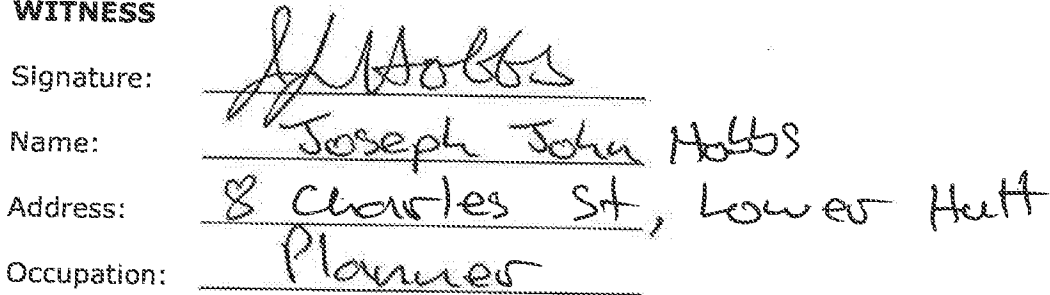 WITNESS
Signature: JJHobbs
Name: Joseph John Hobbs
Address: 8 Charles St, Lower Hutt
Occupation: Planner